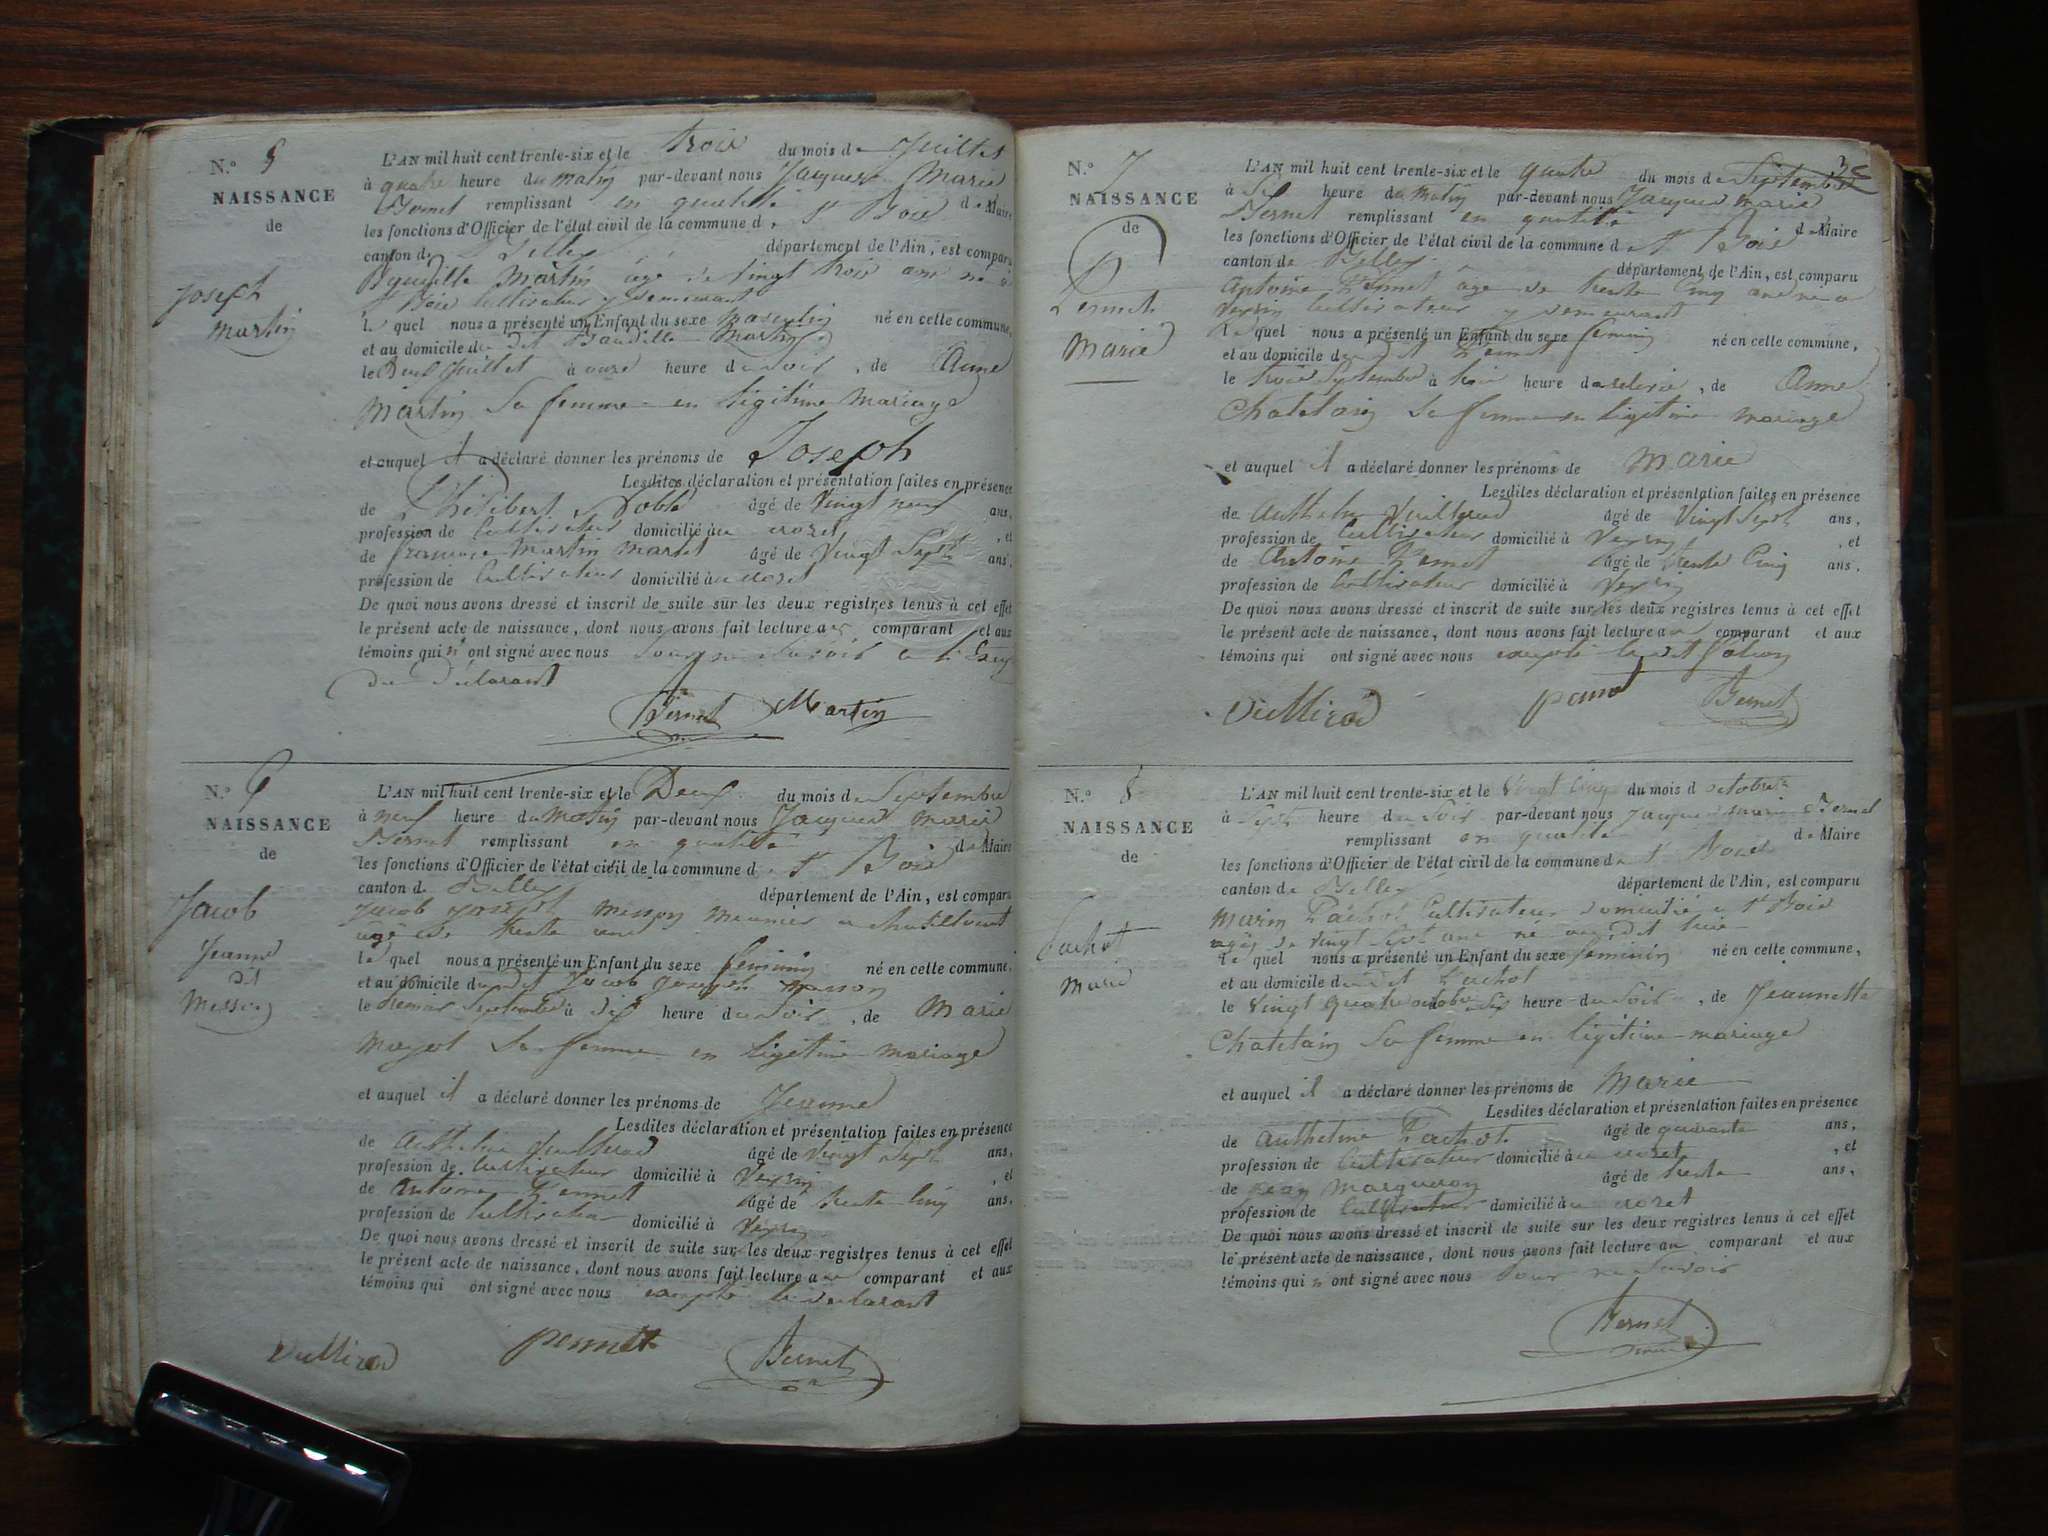 N.º 5
NAISSANCE
de
Joseph
Martin
L'AN mil huit cent trente-six et le trois du mois de Juillet
à quatre heure du matin par-devant nous Jacques Marie
Bernet remplissant en qualité de Maire
les fonctions d'Officier de l'état civil de la commune de St Bois
canton de Belley département de l'Ain, est comparu
Martin âgé de vingt trois ans né à
St Bois cultivateur y demeurant
le quel nous a présenté un Enfant du sexe masculin né en cette commune,
et au domicile du dit Martin
le deux Juillet à onze heure du soir, de Anne
Martin Sa femme en légitime Mariage
et auquel il a déclaré donner les prénoms de Joseph
Lesdites déclaration et présentation faites en présence
de Philibert âgé de vingt neuf ans,
profession de cultivateur domicilié au crozet, et
de Martin âgé de vingt Sept ans,
profession de cultivateur domicilié au crozet
De quoi nous avons dressé et inscrit de suite sur les deux registres tenus à cet effet
le présent acte de naissance, dont nous avons fait lecture au comparant et aux
témoins qui n' ont signé avec nous pour ne Savoir
du déclarant
Bernet Martin
N.º 6
NAISSANCE
de
Jacob
Jeanne
dit
Messon
L'AN mil huit cent trente-six et le Deux du mois de Septembre
à neuf heure du matin par-devant nous Jacques Marie
Bernet remplissant en qualité de Maire
les fonctions d'Officier de l'état civil de la commune de St Bois
canton de Belley département de l'Ain, est comparu
Jacob Joseph Messon meunier a
agé de trente ans
le quel nous a présenté un Enfant du sexe féminin né en cette commune,
et au domicile du dit Jacob Joseph Messon
le premier Septembre à dix heure du soir, de Marie
Sa femme en légitime mariage
et auquel il a déclaré donner les prénoms de Jeanne
Lesdites déclaration et présentation faites en présence
de Anthelme Vuillerod âgé de vingt Sept ans,
profession de cultivateur domicilié à Veyrin, et
de Antoine Pennet âgé de trente cinq ans,
profession de cultivateur domicilié à Veyrin
De quoi nous avons dressé et inscrit de suite sur les deux registres tenus à cet effet
le présent acte de naissance, dont nous avons fait lecture au comparant et aux
témoins qui ont signé avec nous excepté le déclarant
Vuillerod pennet Bernet
36
N.º 7
NAISSANCE
de
Pennet
Marie
L'AN mil huit cent trente-six et le quatre du mois de Septembre
à Six heure du matin par-devant nous Jacques Marie
Bernet remplissant en qualité de Maire
les fonctions d'Officier de l'état civil de la commune de St Bois
canton de Belley département de l'Ain, est comparu
Antoine Pennet âgé de trente cinq ans né a
Veyrin cultivateur y demeurant
le quel nous a présenté un Enfant du sexe féminin né en cette commune,
et au domicile du dit Pennet
le trois Septembre à trois heure du soir, de Anne
Chatelain Sa femme en légitime mariage
et auquel il a déclaré donner les prénoms de Marie
Lesdites déclaration et présentation faites en présence
de Anthelme Vuillerod âgé de vingt Sept ans,
profession de cultivateur domicilié à Veyrin, et
de Antoine Pennet âgé de trente cinq ans,
profession de cultivateur domicilié à Veyrin
De quoi nous avons dressé et inscrit de suite sur les deux registres tenus à cet effet
le présent acte de naissance, dont nous avons fait lecture au comparant et aux
témoins qui ont signé avec nous excepté le dit
Vuillerod pennet Bernet
N.º 8
NAISSANCE
de
Pachot
Marie
L'AN mil huit cent trente-six et le vingt cinq du mois d octobre
à Sept heure du soir par-devant nous Jacques Marie Bernet
remplissant en qualité de Maire
les fonctions d'Officier de l'état civil de la commune de St Bois
canton de Belley département de l'Ain, est comparu
Marin Pachot cultivateur domicilié a St Bois
agé de vingt Sept ans né au dit lieu
le quel nous a présenté un Enfant du sexe féminin né en cette commune,
et au domicile du dit Pachot
le vingt quatre octobre à six heure du soir, de Jeannette
Chatelain Sa femme en légitime mariage
et auquel il a déclaré donner les prénoms de Marie
Lesdites déclaration et présentation faites en présence
de Anthelme Pachot âgé de quarante ans,
profession de cultivateur domicilié au crozet, et
de Jean Marqueron âgé de trente ans,
profession de cultivateur domicilié au crozet
De quoi nous avons dressé et inscrit de suite sur les deux registres tenus à cet effet
le présent acte de naissance, dont nous avons fait lecture au comparant et aux
témoins qui n ont signé avec nous pour ne Savoir
Bernet